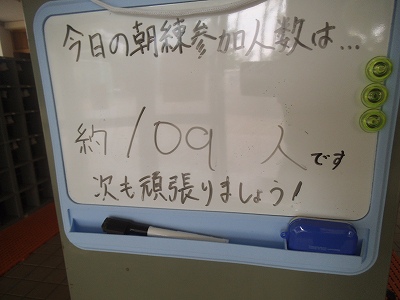 今日の朝練参加人数は…
約109人です
次も頑張りましょう!